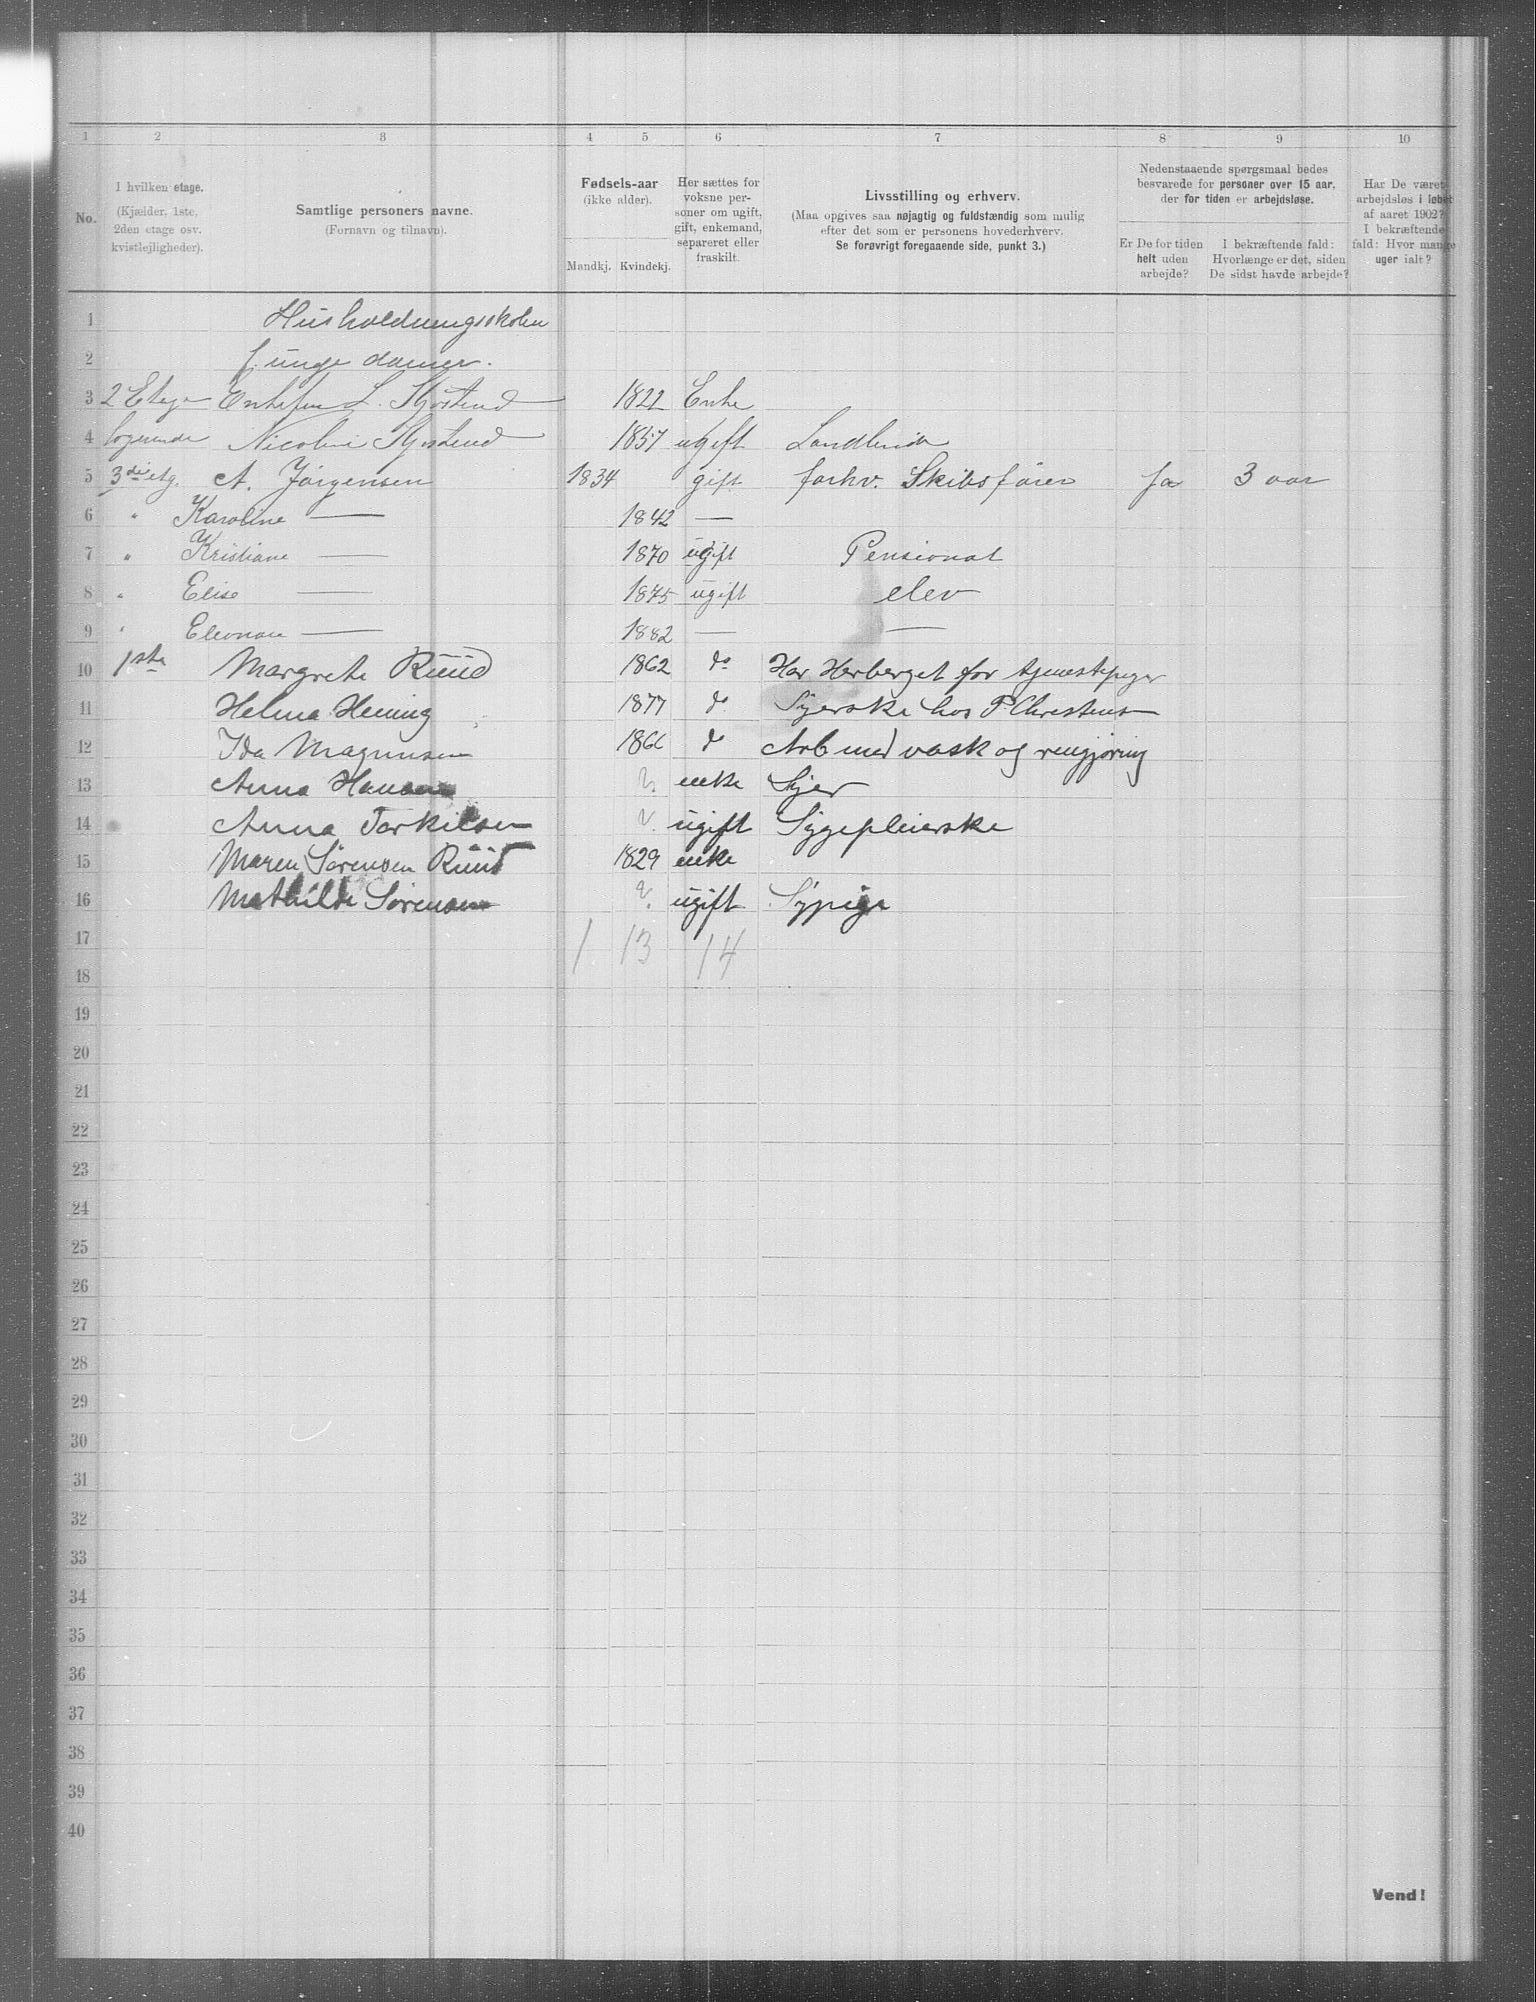 1 2 3 4 5 6 7 8 9 10
No.
I hvilken etage.
(Kjælder, 1ste, 2den etage osv. kvistlejligheder).
Samtlige personers navne.
(Fornavn og tilnavn).
Fødsels-aar
(ikke alder).
Mandkj. Kvindekj.
Her sættes for voksne personer om ugift, gift, enkemand, separeret eller fraskilt.
Livsstilling og erhverv.
(Maa opgives saa nøjagtig og fuldstændig som mulig
efter det som er personens hovederhverv.
Se forøvrigt foregaaende side, punkt 3.)
Nedenstaaende spørgsmaal bedes
besvarede for personer over 15 aar,
der for tiden er arbejdsløse.
Er De for tiden helt uden arbejde?
I bekræftende fald: Hvorlænge er det, siden De sidst havde arbejde?
Har De været arbejdsløs i løbet af aaret 1902? I bekræftende fald: Hvor mange uger ialt?
1 Husholdningsskolen
2 f. unge damer.
3 2 Etage Enkefru L. 1822 Enke
4 logerende Nicoline 1857 ugift
5 3die etg. A. Jörgensen 1834 gift forhv. Skibsfører Ja 3 aar
6 " Karoline — 1842 —
7 " Kristiane — 1870 ugift Pensionat
8 " Elise — 1875 ugift elev
9 " Eleonore — 1882 — —
10 1ste Margrete Ruud 1862 do Har Herberget for tjenestepiger
11 Helma Hening 1877 do Syerske hos P. Christensen
12 Ida Magnusen 1866 do Arb med vask og rengjøring
13 Anna Hansen ?. enke Syer
14 Anna Torkilsen ?. ugift Sygepleierske
15 Maren Sørensen Ruud 1829 enke
16 Mathilde Sørensen ?. ugift Sypige
17 1 13 14
18
19
20
21
22
23
24
25
26
27
28
29
30
31
32
33
34
35
36
37
38
39
40
Vend!